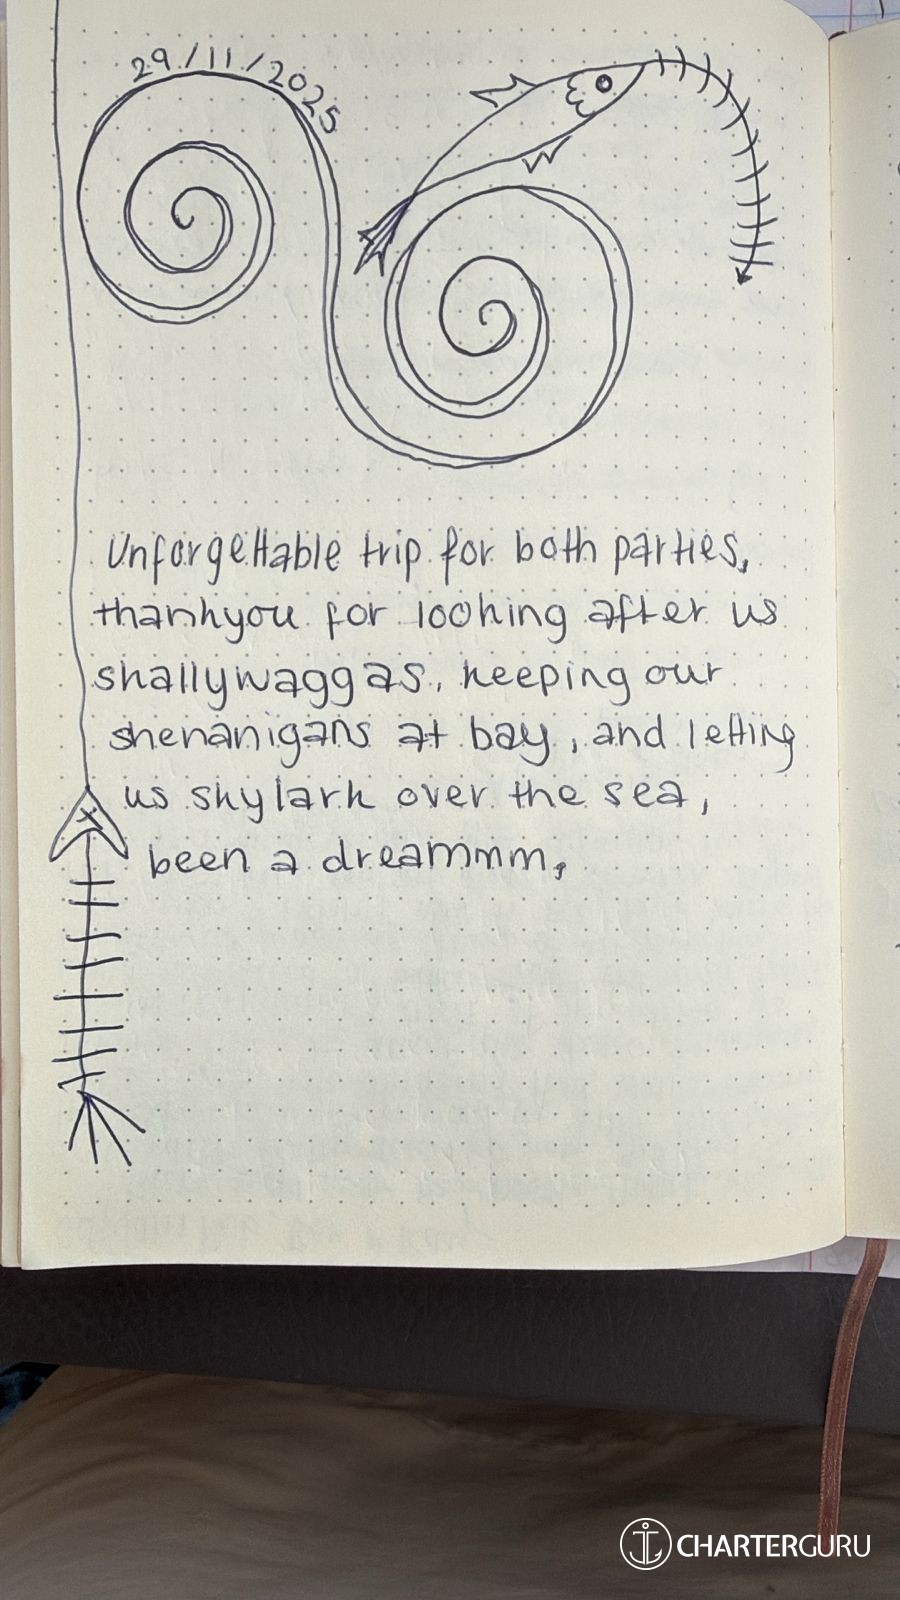 29/11/2025
Unforgettable trip for both parties,
thankyou for looking after us
shallywaggas, keeping our
shenanigans at bay, and letting
us skylark over the sea,
been a dreammm,
CHARTERGURU